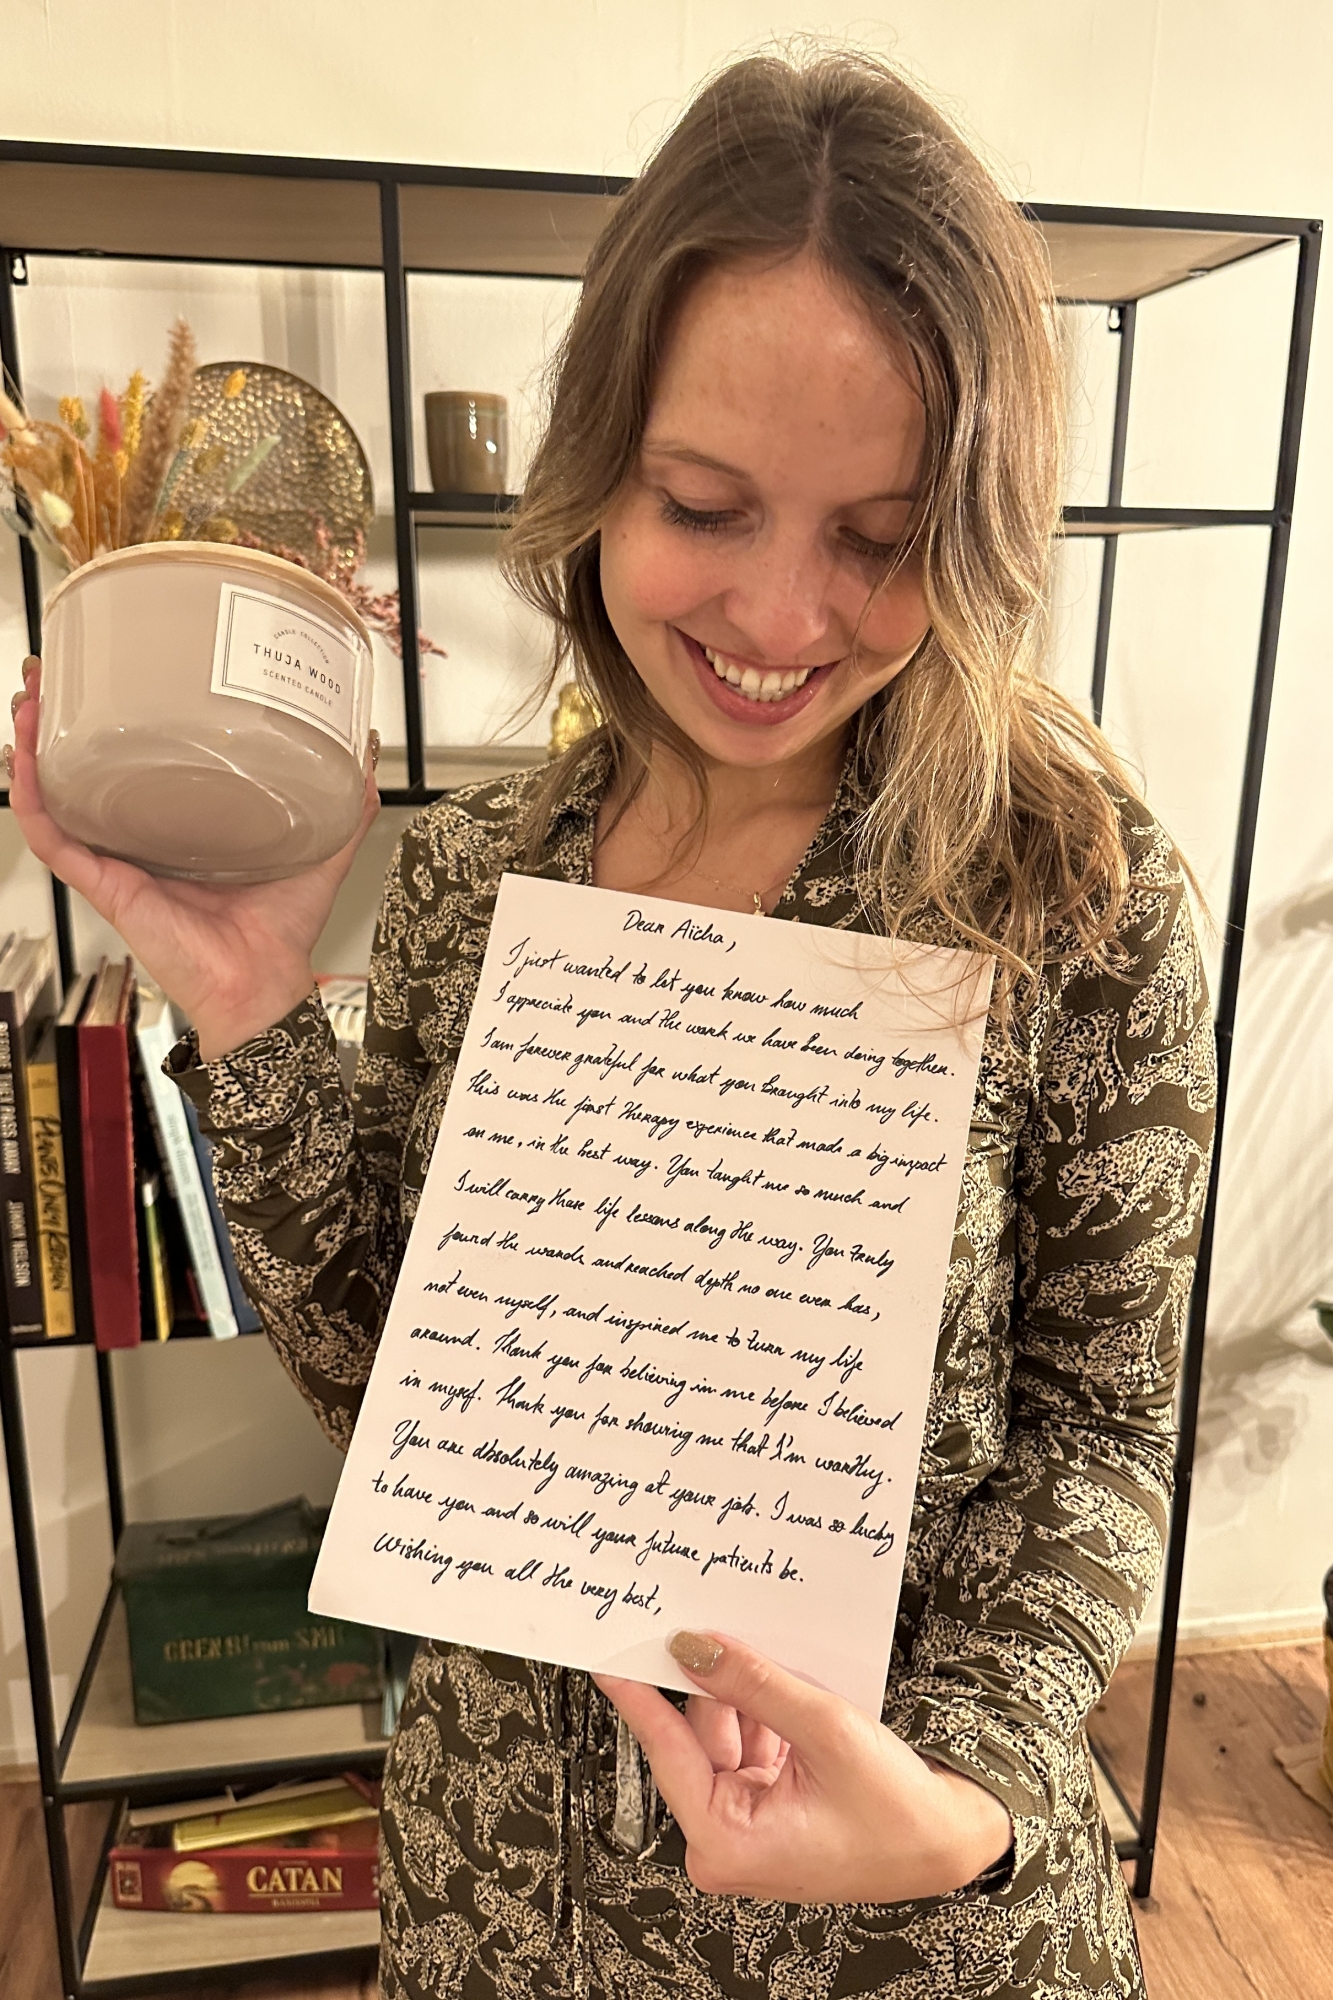 CANDLE COLLECTION
THUJA WOOD
SCENTED CANDLE
Dear Aïcha,
I just wanted to let you know how much
I appreciate you and the work we have been doing together.
I am forever grateful for what you brought into my life.
This was the first therapy experience that made a big impact
on me, in the best way. You taught me so much and
I will carry these life lessons along the way. You truly
found the words and reached depth no one ever has,
not even myself, and inspired me to turn my life
around. Thank you for believing in me before I believed
in myself. Thank you for showing me that I'm worthy.
You are absolutely amazing at your job. I was so lucky
to have you and so will your future patients be.
Wishing you all the very best,
JANDY NELSON
CATAN